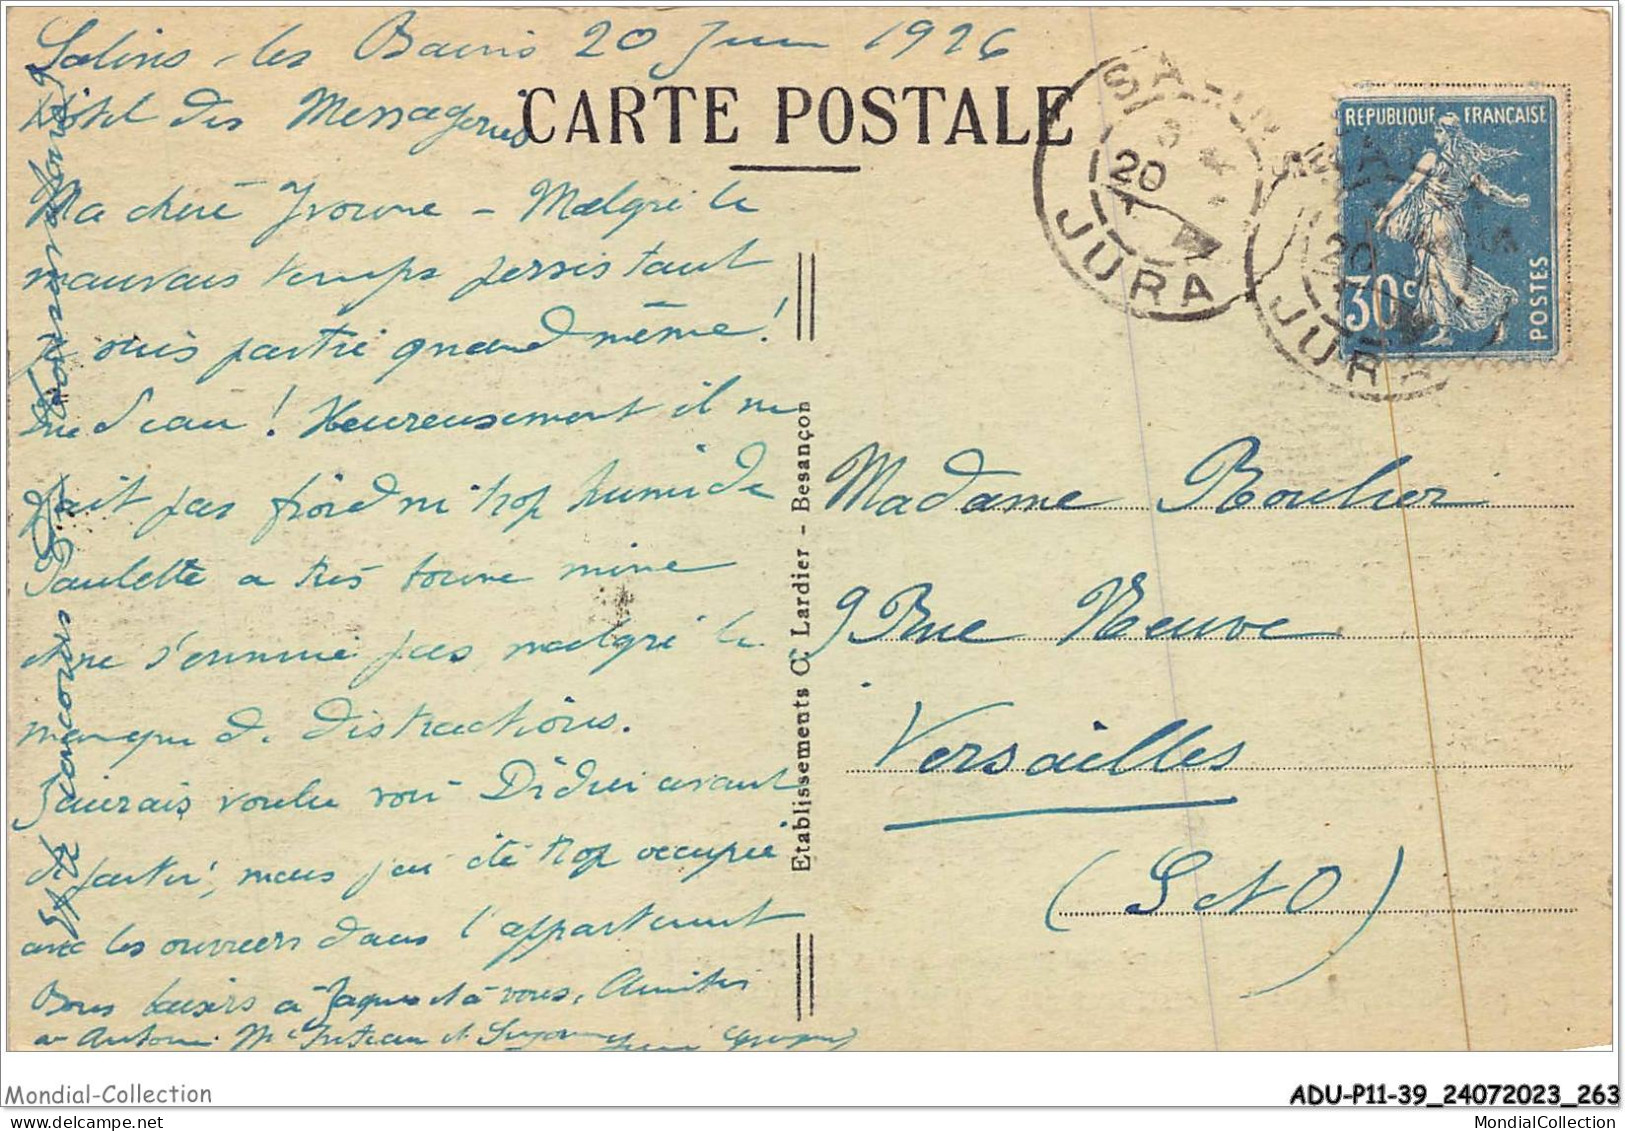 Salins-les Bains 20 Juin 1926
Hôtel des Messageries
CARTE POSTALE
Ma chère Yvonne - Malgré le
mauvais temps persistant
je suis partie quand même!
d'eau! Heureusement il ne
fait pas froid ni trop humide
Paulette a très bonne mine
et ne s'ennuie pas malgré le
manque de distractions.
J'aurais voulu voir Didier avant
de partir, mais j'ai été trop occupée
avec les ouvriers dans l'appartement
Bons baisers à Jaques et à vous, Amitiés
à Antoine. et Suzanne
concours
Etablissements C. Lardier - Besançon
JURA
20
JURA
20
REPUBLIQUE FRANÇAISE
30c
POSTES
Madame Roulier
9 Rue Neuve
Versailles
(S et O)
Mondial-Collection
ADU-P11-39_24072023_263
MondialCollection